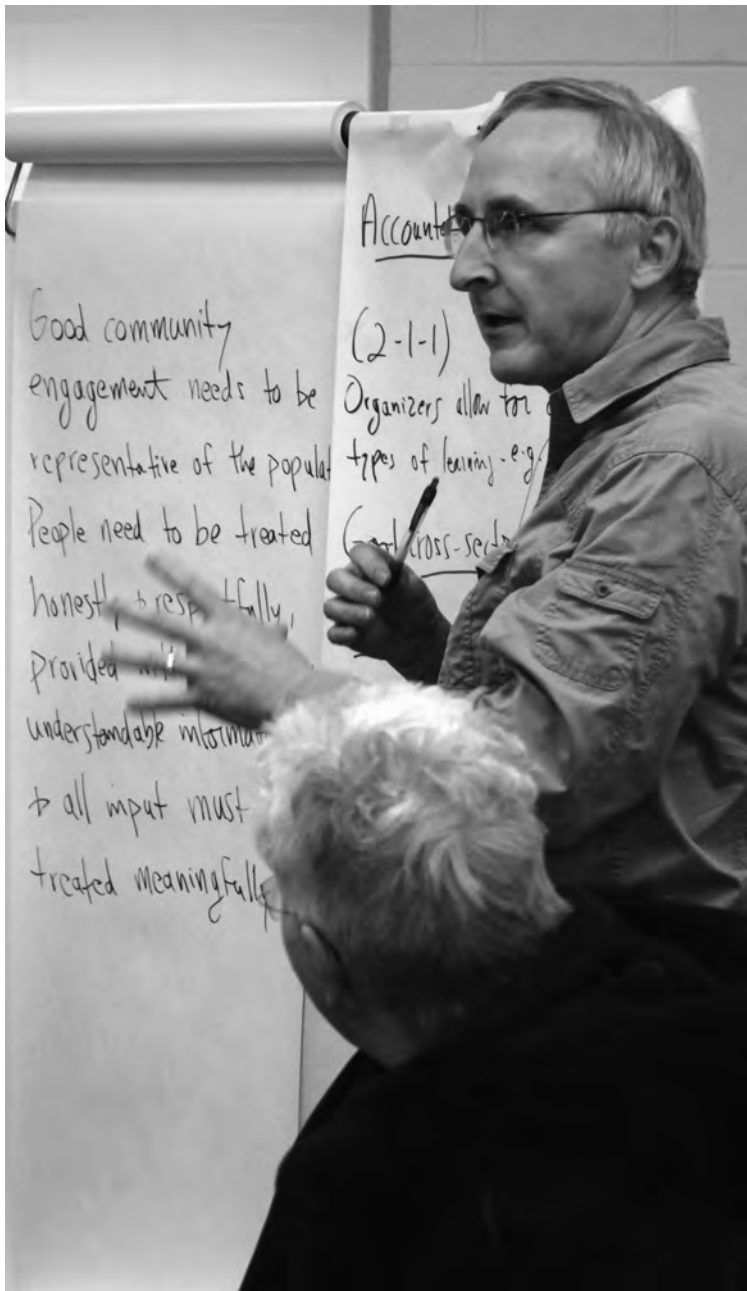 Good community
engagement needs to be
representative of the populat
People need to be treated
honestly & respectfully,
provided
understandable informa
& all input must
treated meaningfully
Account
(2-1-1)
Organizers allow for
types of learning - e.g.
cross-sect